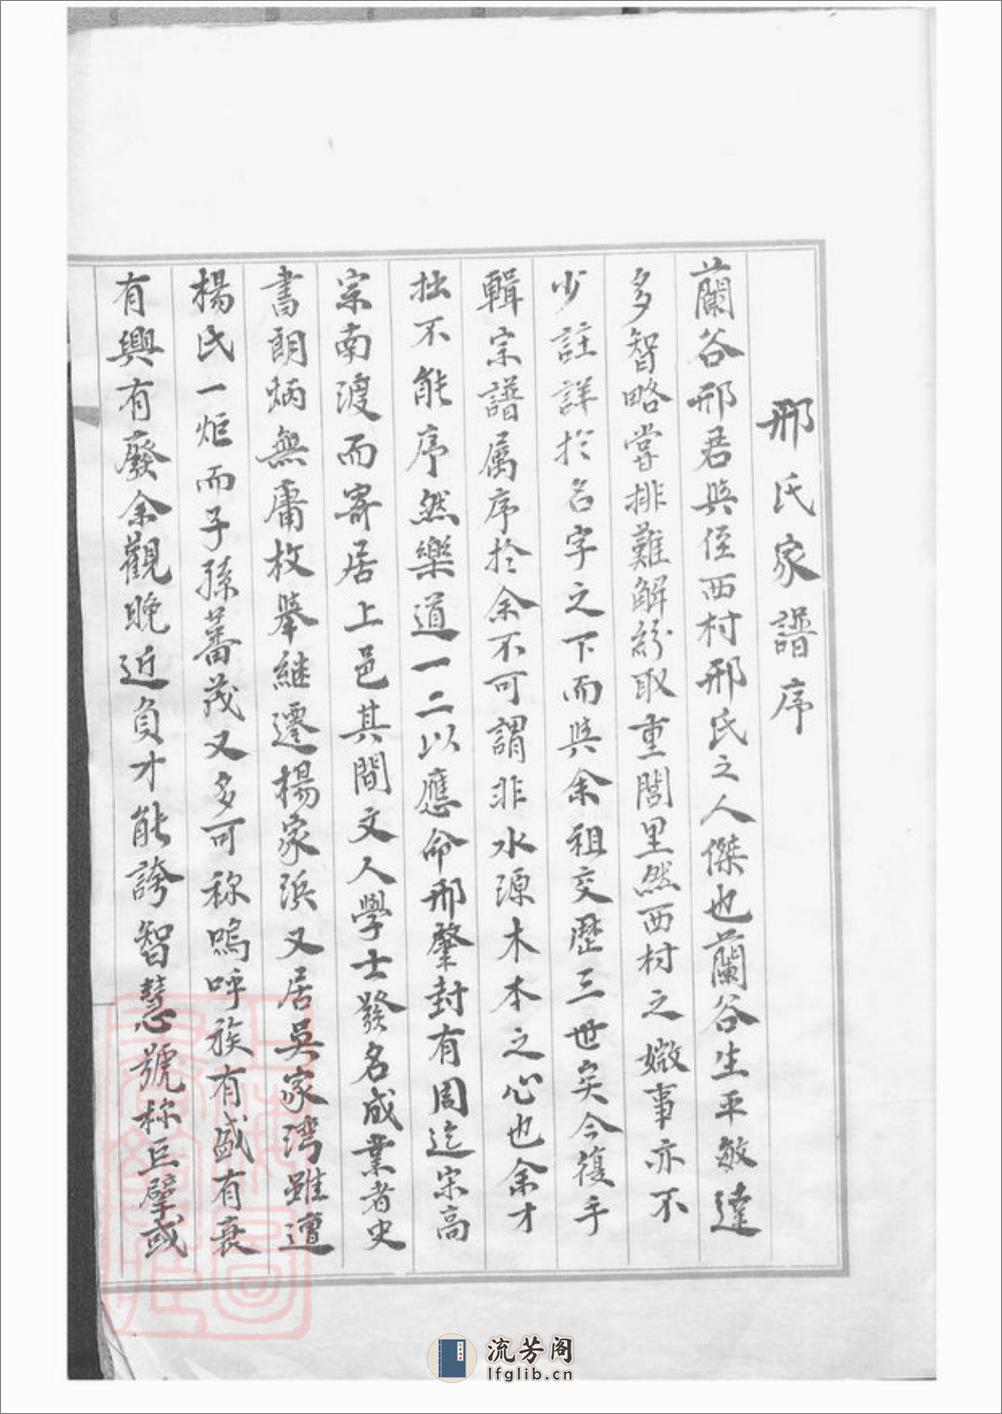 邢氏家譜序
蘭谷邢君與侄西村邢氏之人傑也蘭谷生平敏達
多智略嘗排難解紛取重閭里然西村之媺事亦不
少註詳於名字之下而與余祖交歷三世矣今復手
輯宗譜属序於余不可謂非水源木本之心也余才
拙不能序然樂道一二以應命邢肇封有周迄宋高
宗南渡而寄居上邑其間文人學士發名成業者史
書朗炳無庸枚舉継遷楊家浜又居吳家湾雖遭
楊氏一炬而子孫蕃茂又多可称嗚呼族有盛有衰
有興有廢余觀晚近負才能誇智慧號称巨擘或
流芳阁
lfglib.cn